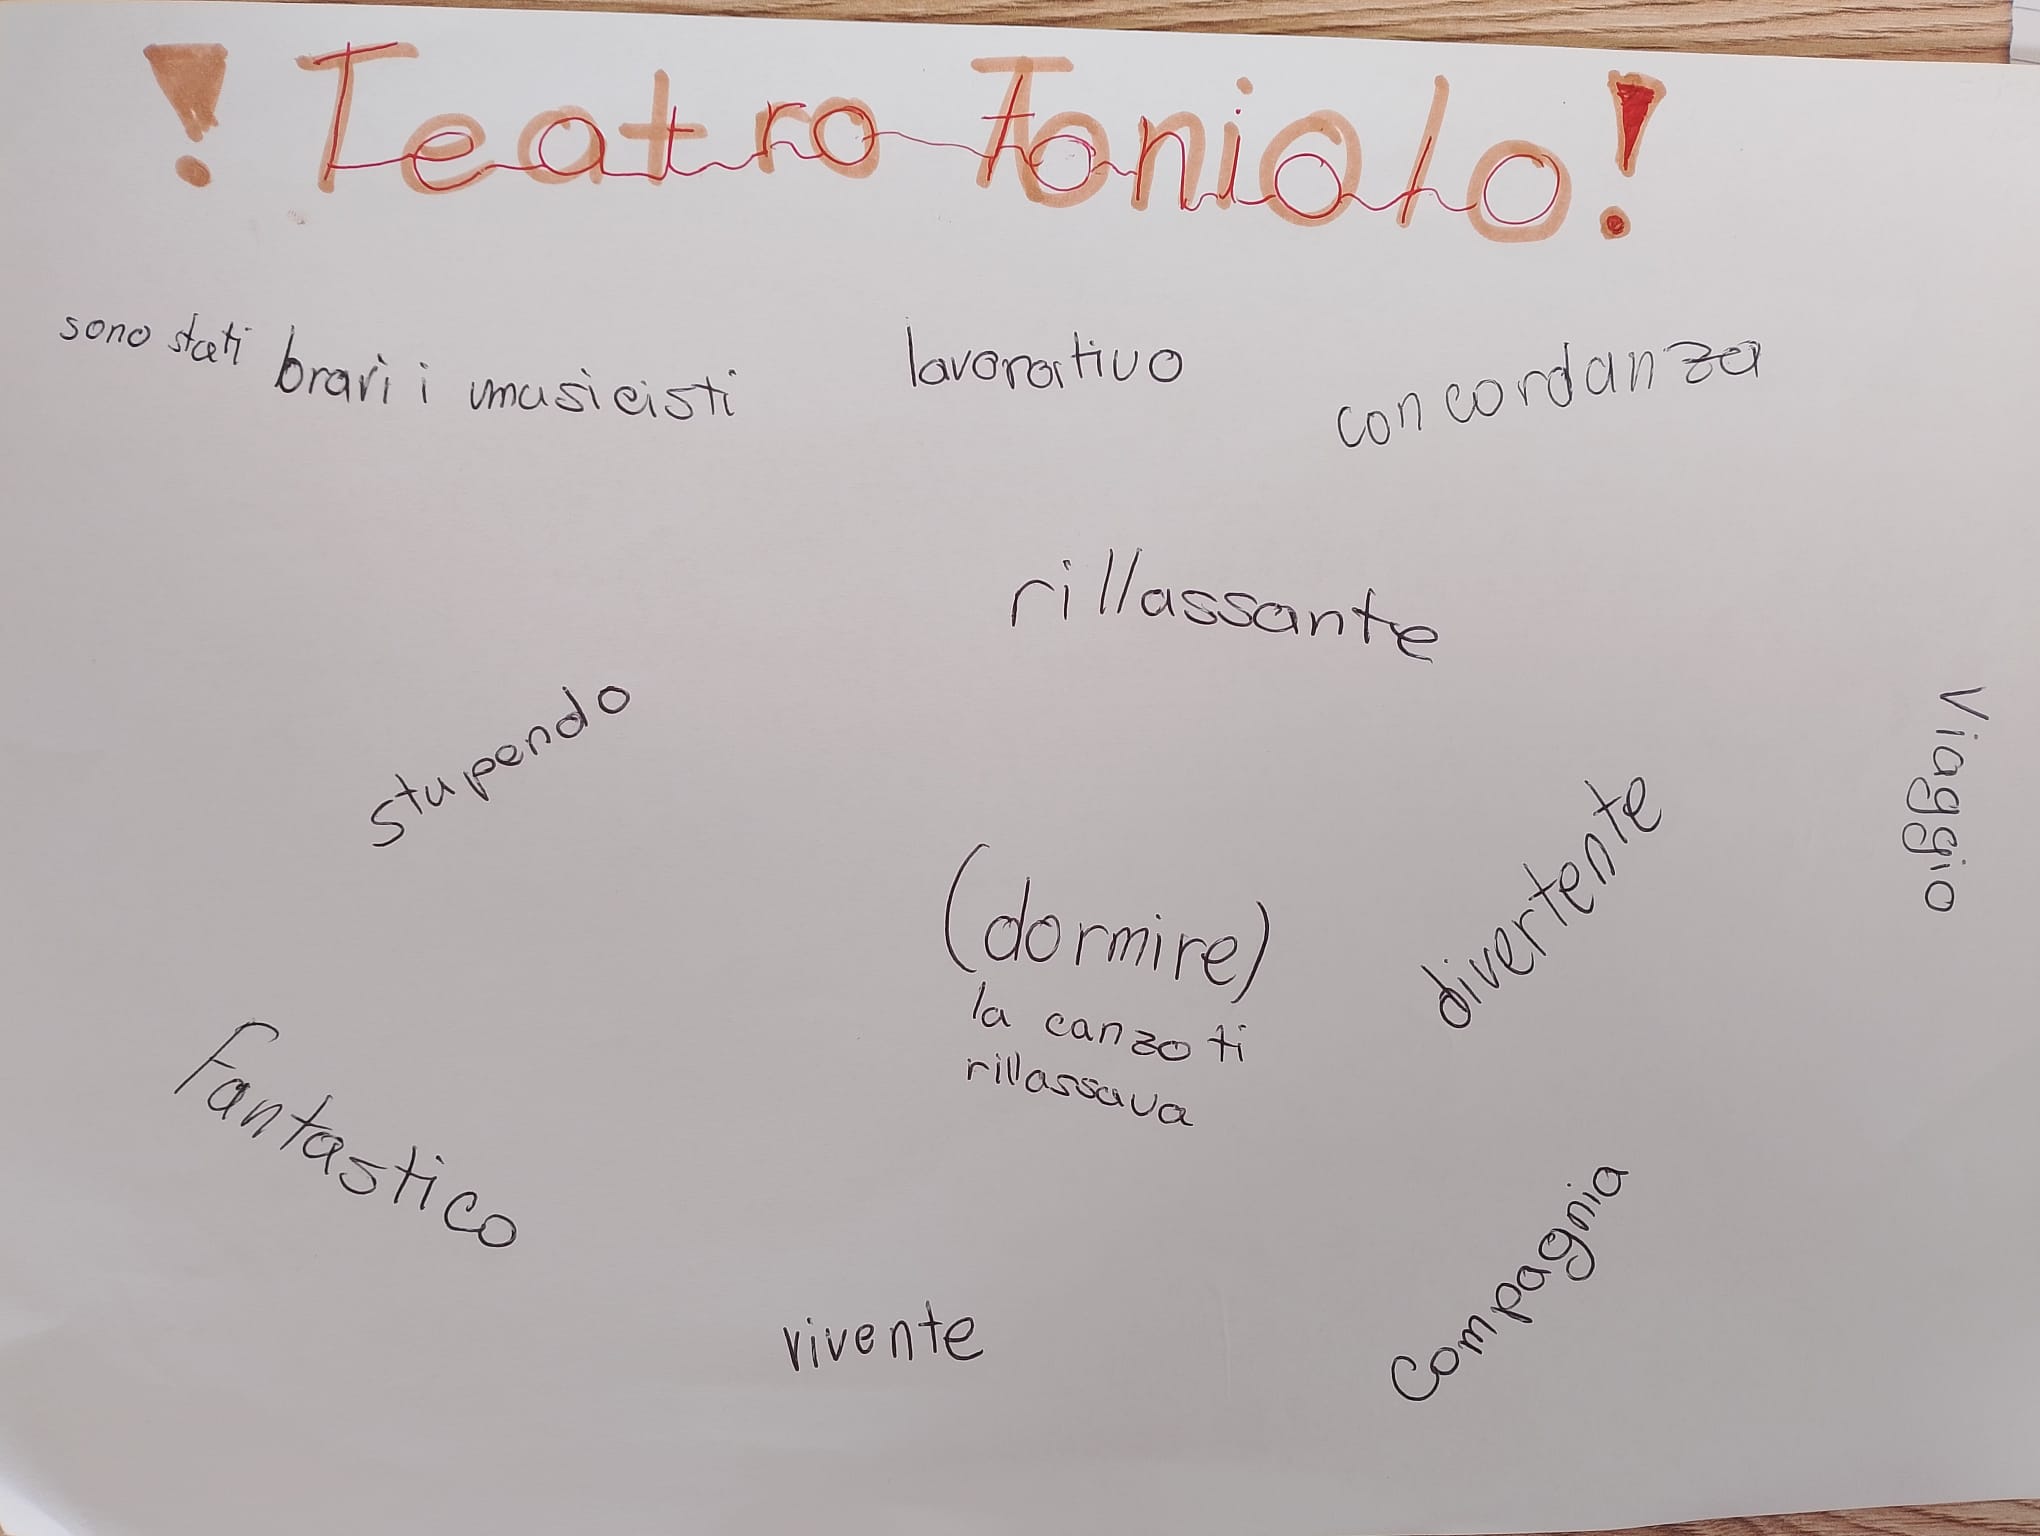 ! Teatro Toniolo!
sono stati brari i musicisti
lavorativo
concordanza
rillassante
stupendo
Viaggio
divertente
(dormire)
la canzo ti
rillassava
Fantastico
Compagnia
vivente